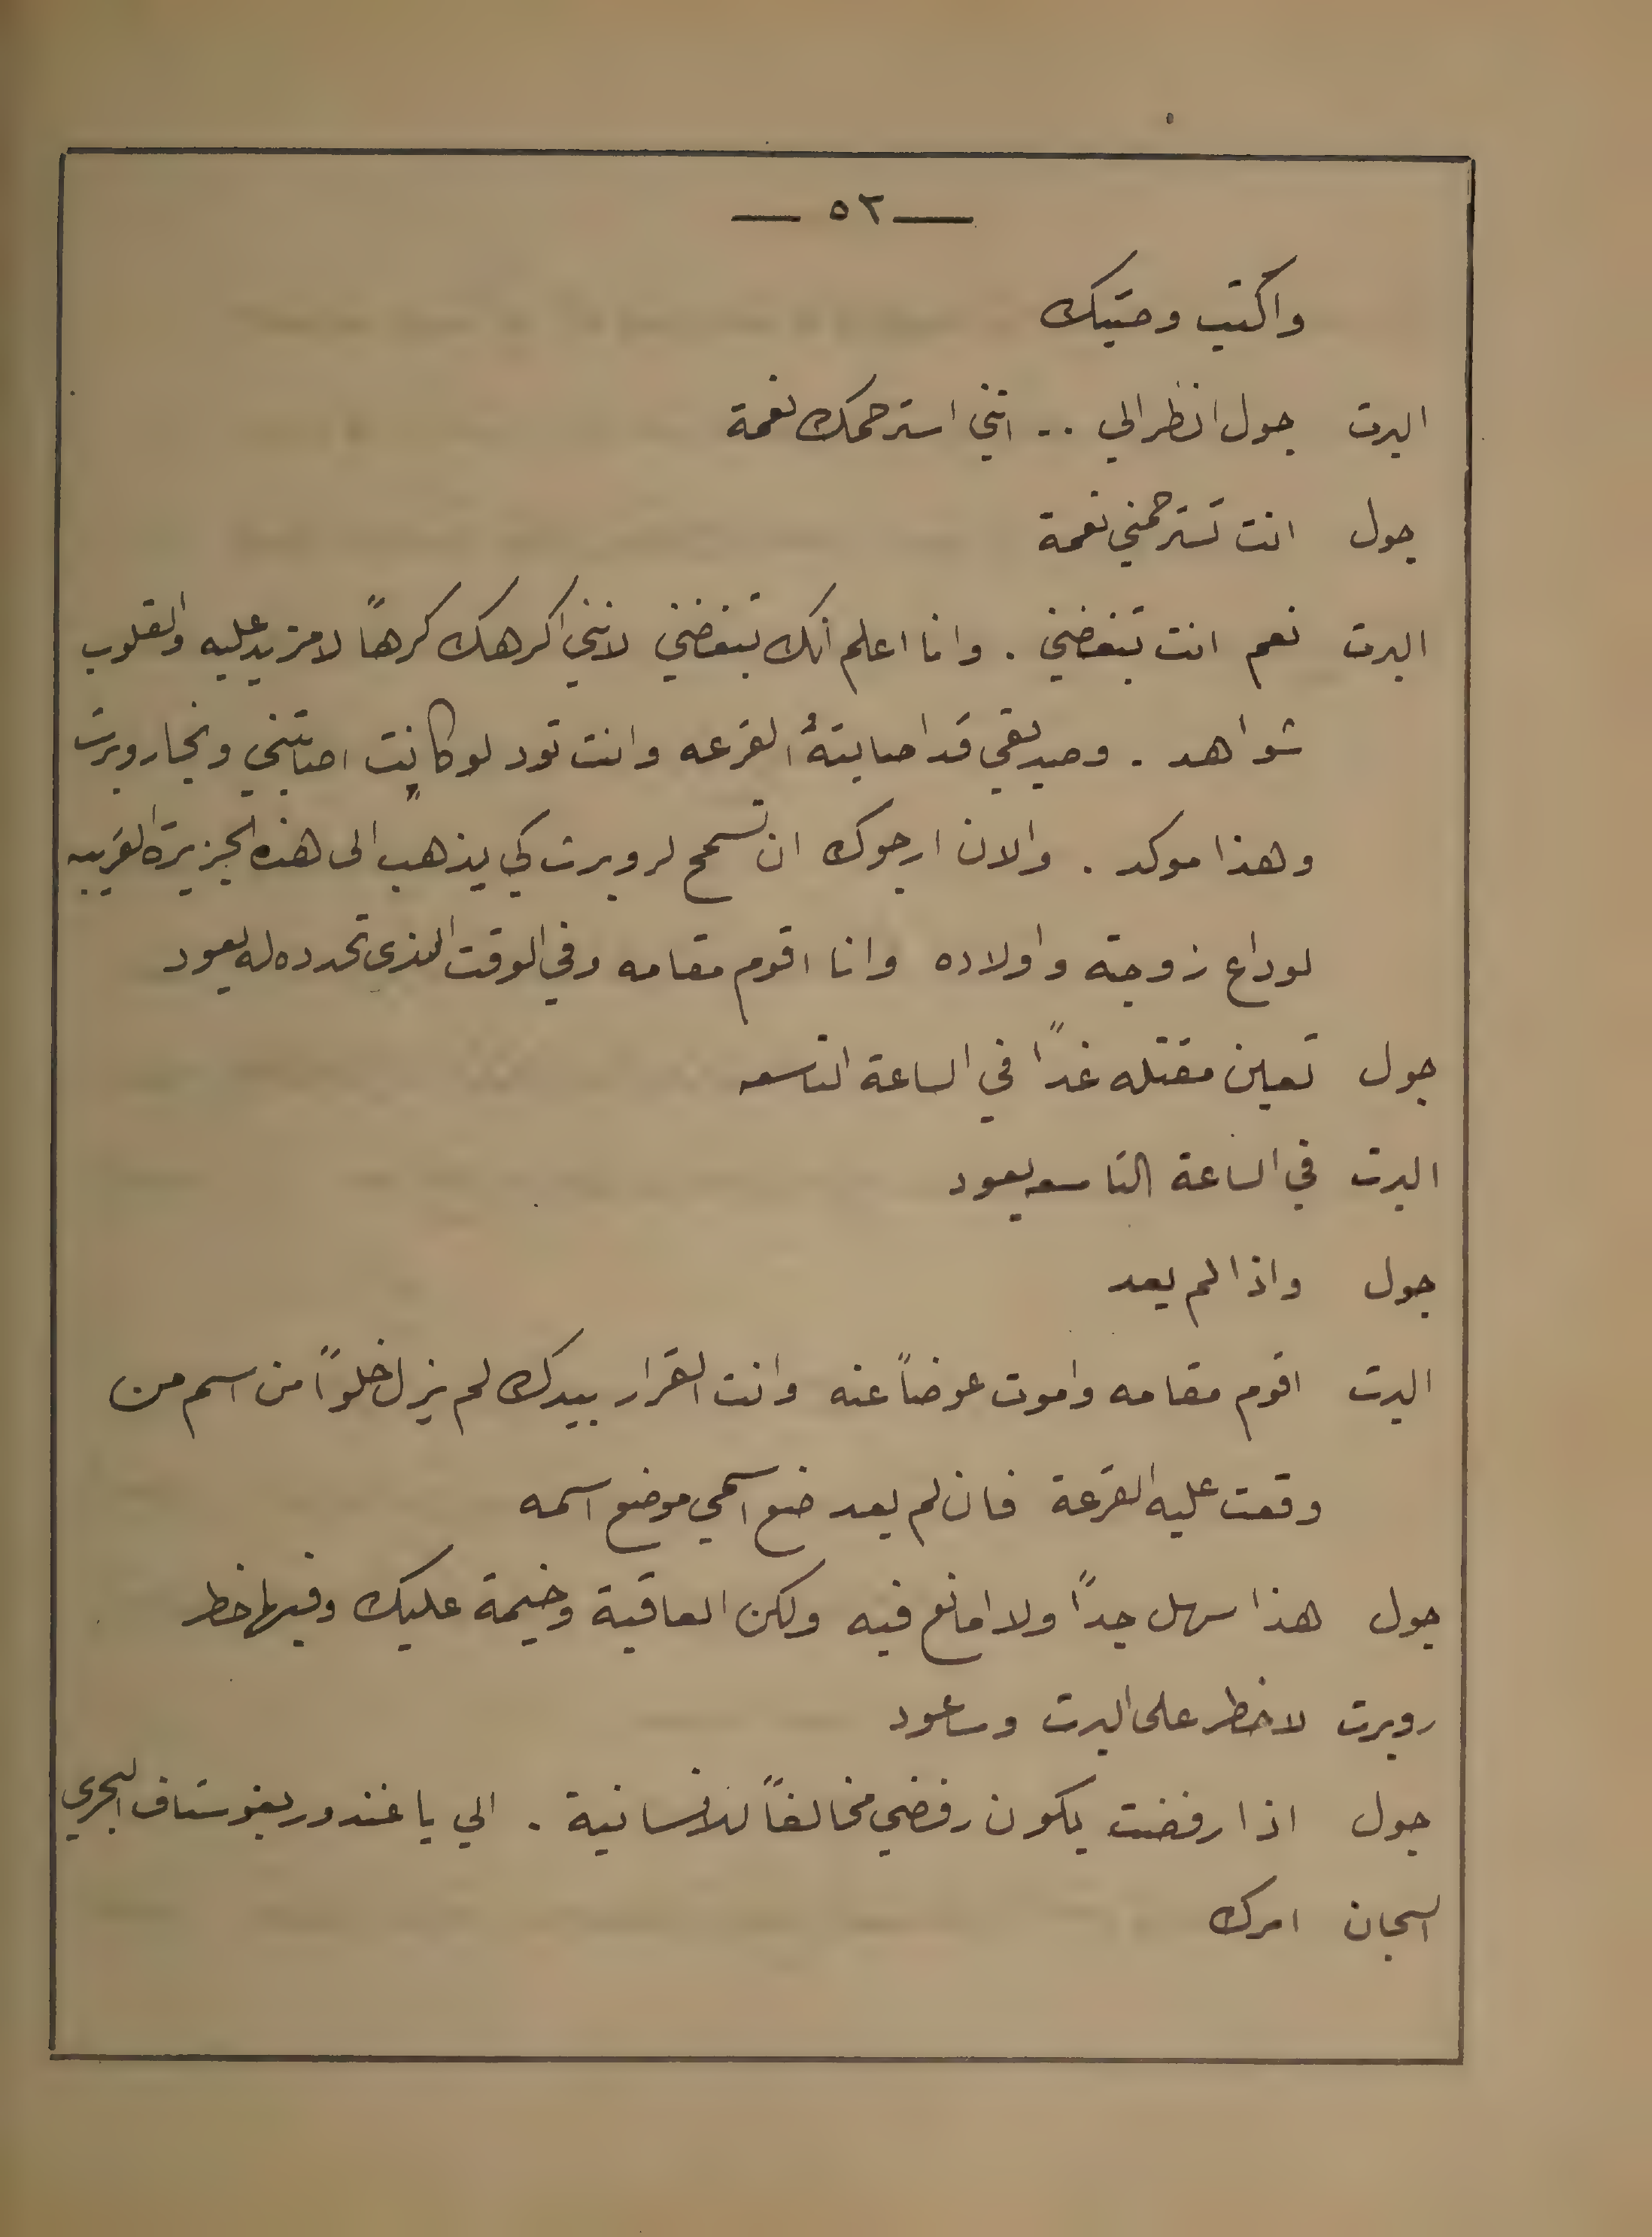 — ٥٢ —
واكتب وصيتك
البرت جول انظر الي .. انني استرحمك نعمة
جول انت تسترحمني نعمة
البرت نعم انت تبغضني . وانا اعلم انك تبغضني لانني اكرهك كرهاً لا مزيد عليه والقلوب
شواهد . وصديقي قد اصابتهُ القرعه وانت تود لو كانت اصابتني ونجا روبرت
وهذا موكد . والان ارجوك ان تسمح لروبرت كي يذهب الى هذه الجزيرة القريبه
لوداع زوجته واولاده وانا اقوم مقامه وفي الوقت الذي تحدده له يعود
جول تعين مقتله غداً في الساعة التاسعه
البرت في الساعة التاسعه يعود
جول واذا لم يعد
البرت اقوم مقامه واموت عوضاً عنه وانت القرار بيدك لم يزل خلواً من اسم من
وقعت عليه القرعة فان لم يعد ضع اسمي موضع اسمه
جول هذا سهل جداً ولا امانع فيه ولكن العاقبة وخيمة عليك وفيها خطر
روبرت لا خطر على البرت وساعود
جول اذا رفضت يكون رفضي مخالفاً للانسانية . الي يا غندور بغوستاف البحري
السجان امرك